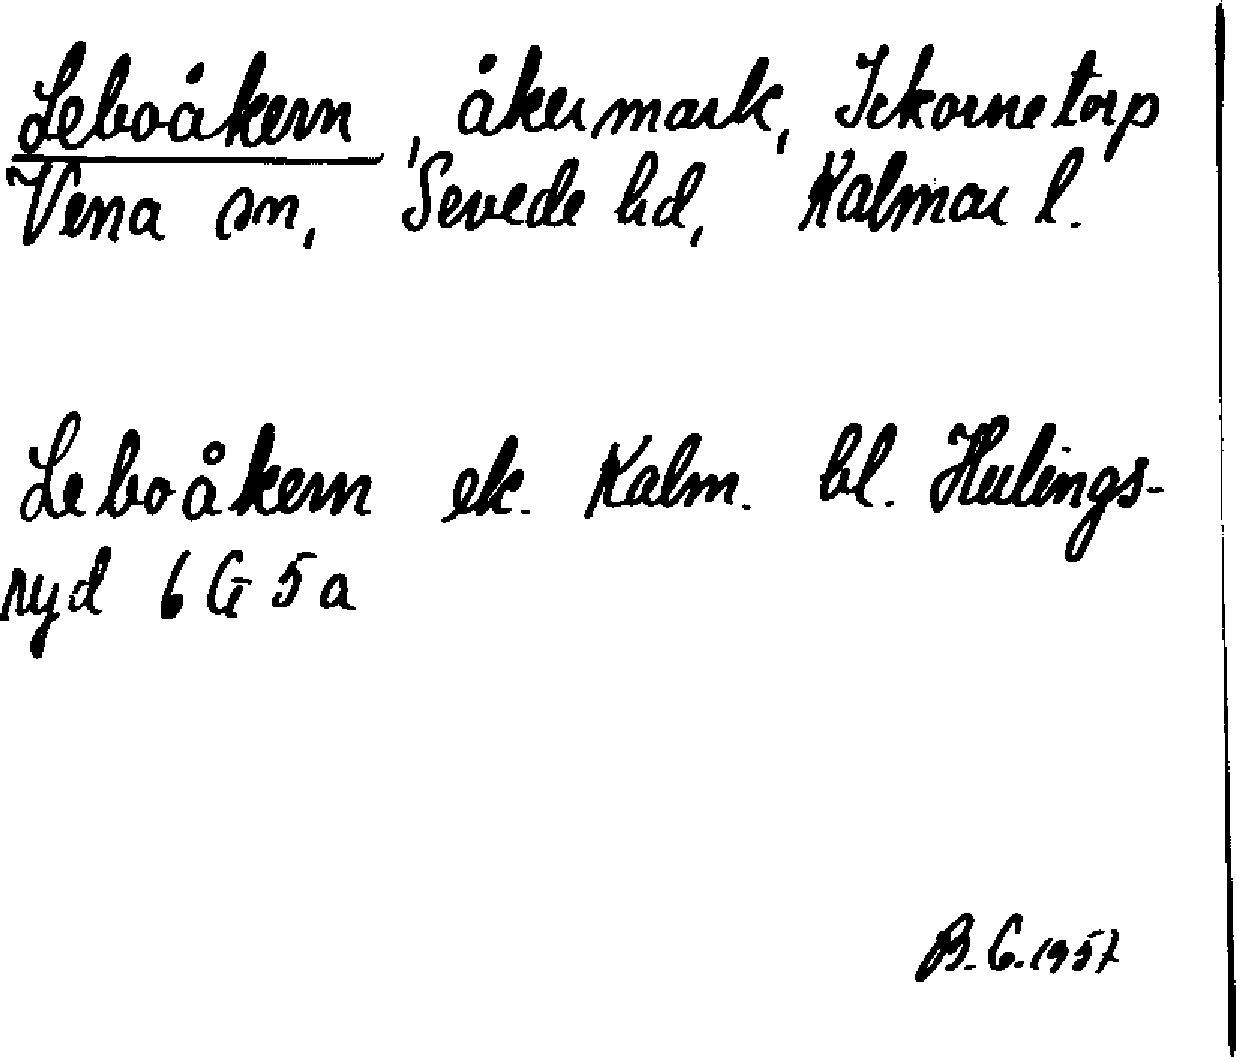 Leboåkern, åkermark, Ickornetorp
Vena sn, Sevede hd, Kalmar l.
Leboåkern ek. Kalm. bl. Hulings-
ryd 6 G 5 a
B. G. 1957